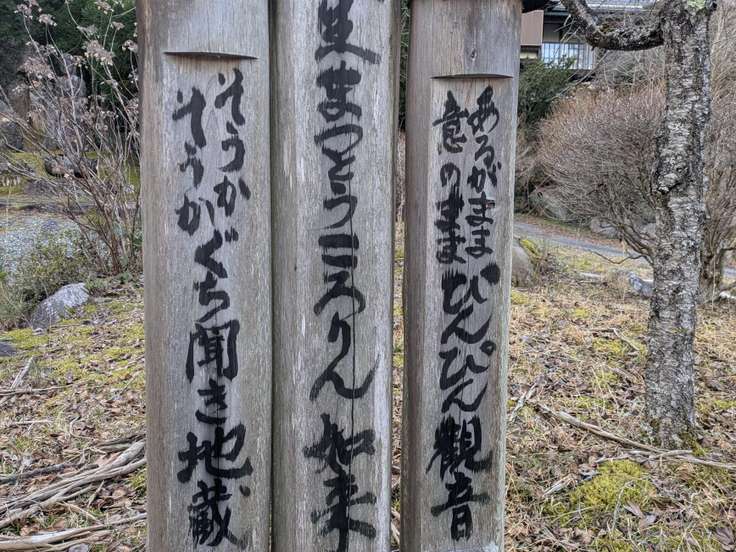 あるがまま
意のまま
ぴんぴん観音
生まっとうころりん如来
そうか
そうか
ぐち聞き地蔵